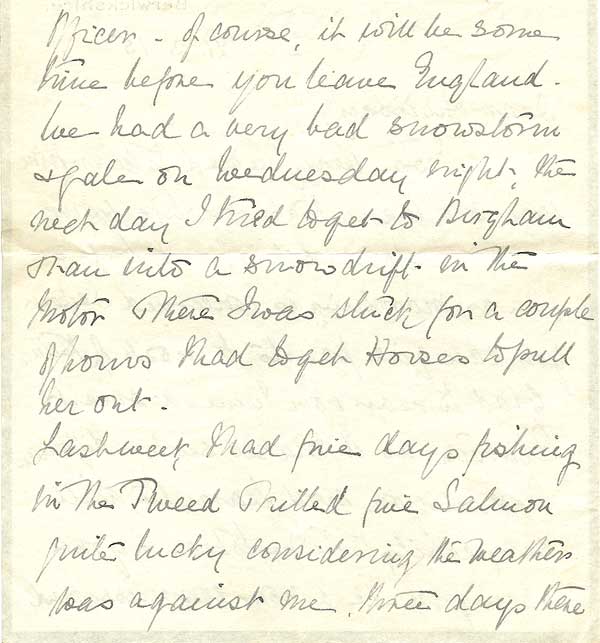 Officer - of course, it will be some
time before you leave England.
We had a very bad snowstorm
& gale on Wednesday night, the
next day I tried to get to Birgham
& ran into a snowdrift in the
Motor There I was stuck for a couple
of hours & had to get Horses to pull
her out.
Last week I had five days fishing
in the Tweed I killed five Salmon
quite lucky considering the weather
was against me, three days there